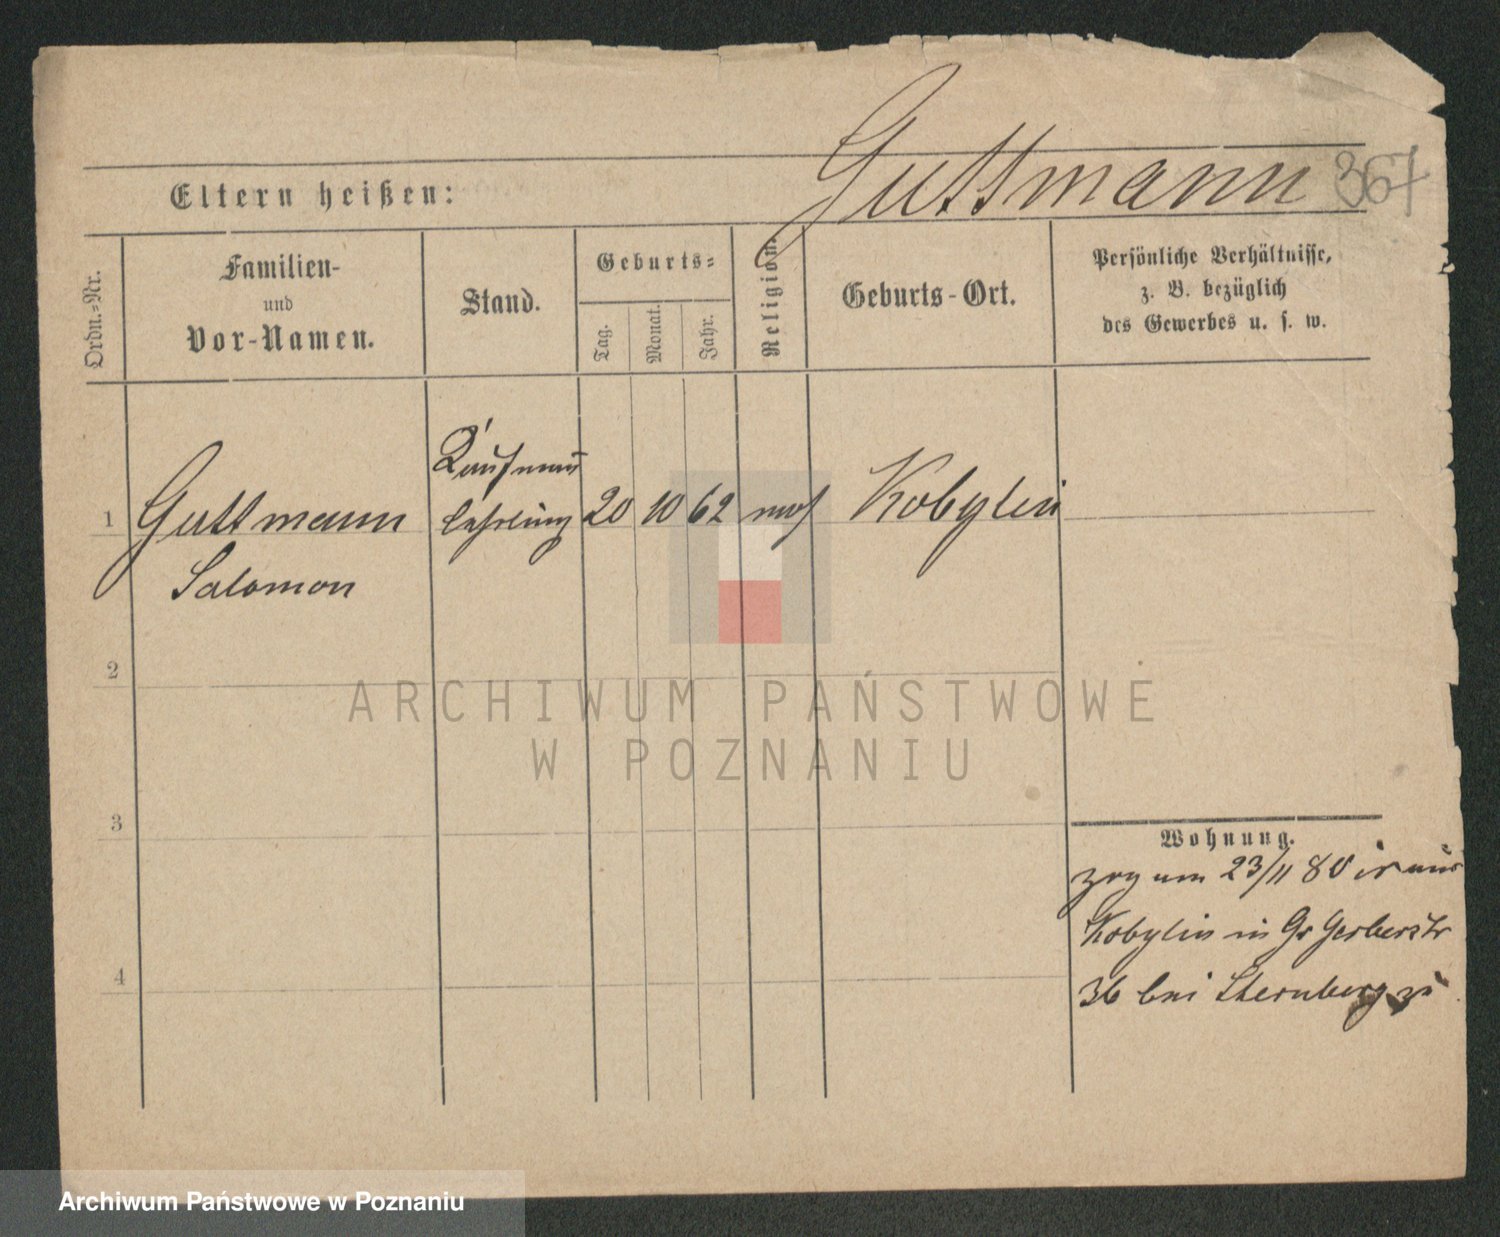 Guttmann 367
Eltern heißen:
Ordn.-Nr.
Familien-
und
Vor-Namen.
Stand.
Geburts-
Tag.
Monat.
Jahr.
Religion.
Geburts-Ort.
Persönliche Verhältnisse,
z. B. bezüglich
des Gewerbes u. s. w.
Kaufmann
1 Guttmann Lehrling 20 10 62 mos Kobylin
Salomon
2
ARCHIWUM PAŃSTWOWE
W POZNANIU
3
Wohnung.
zog am 23/11 80 aus
Kobylin in Gr Gerberstr
4
36 bei Sternberg zu
Archiwum Państwowe w Poznaniu